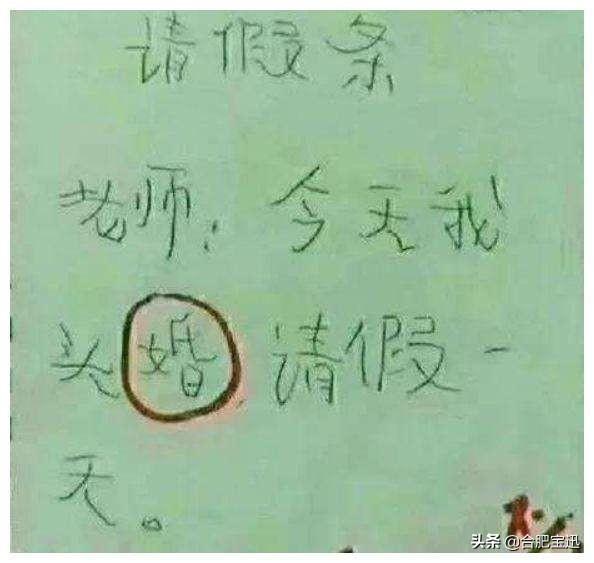 请假条
老师：今天我
头婚，请假一
天。
头条 @合肥宝迅